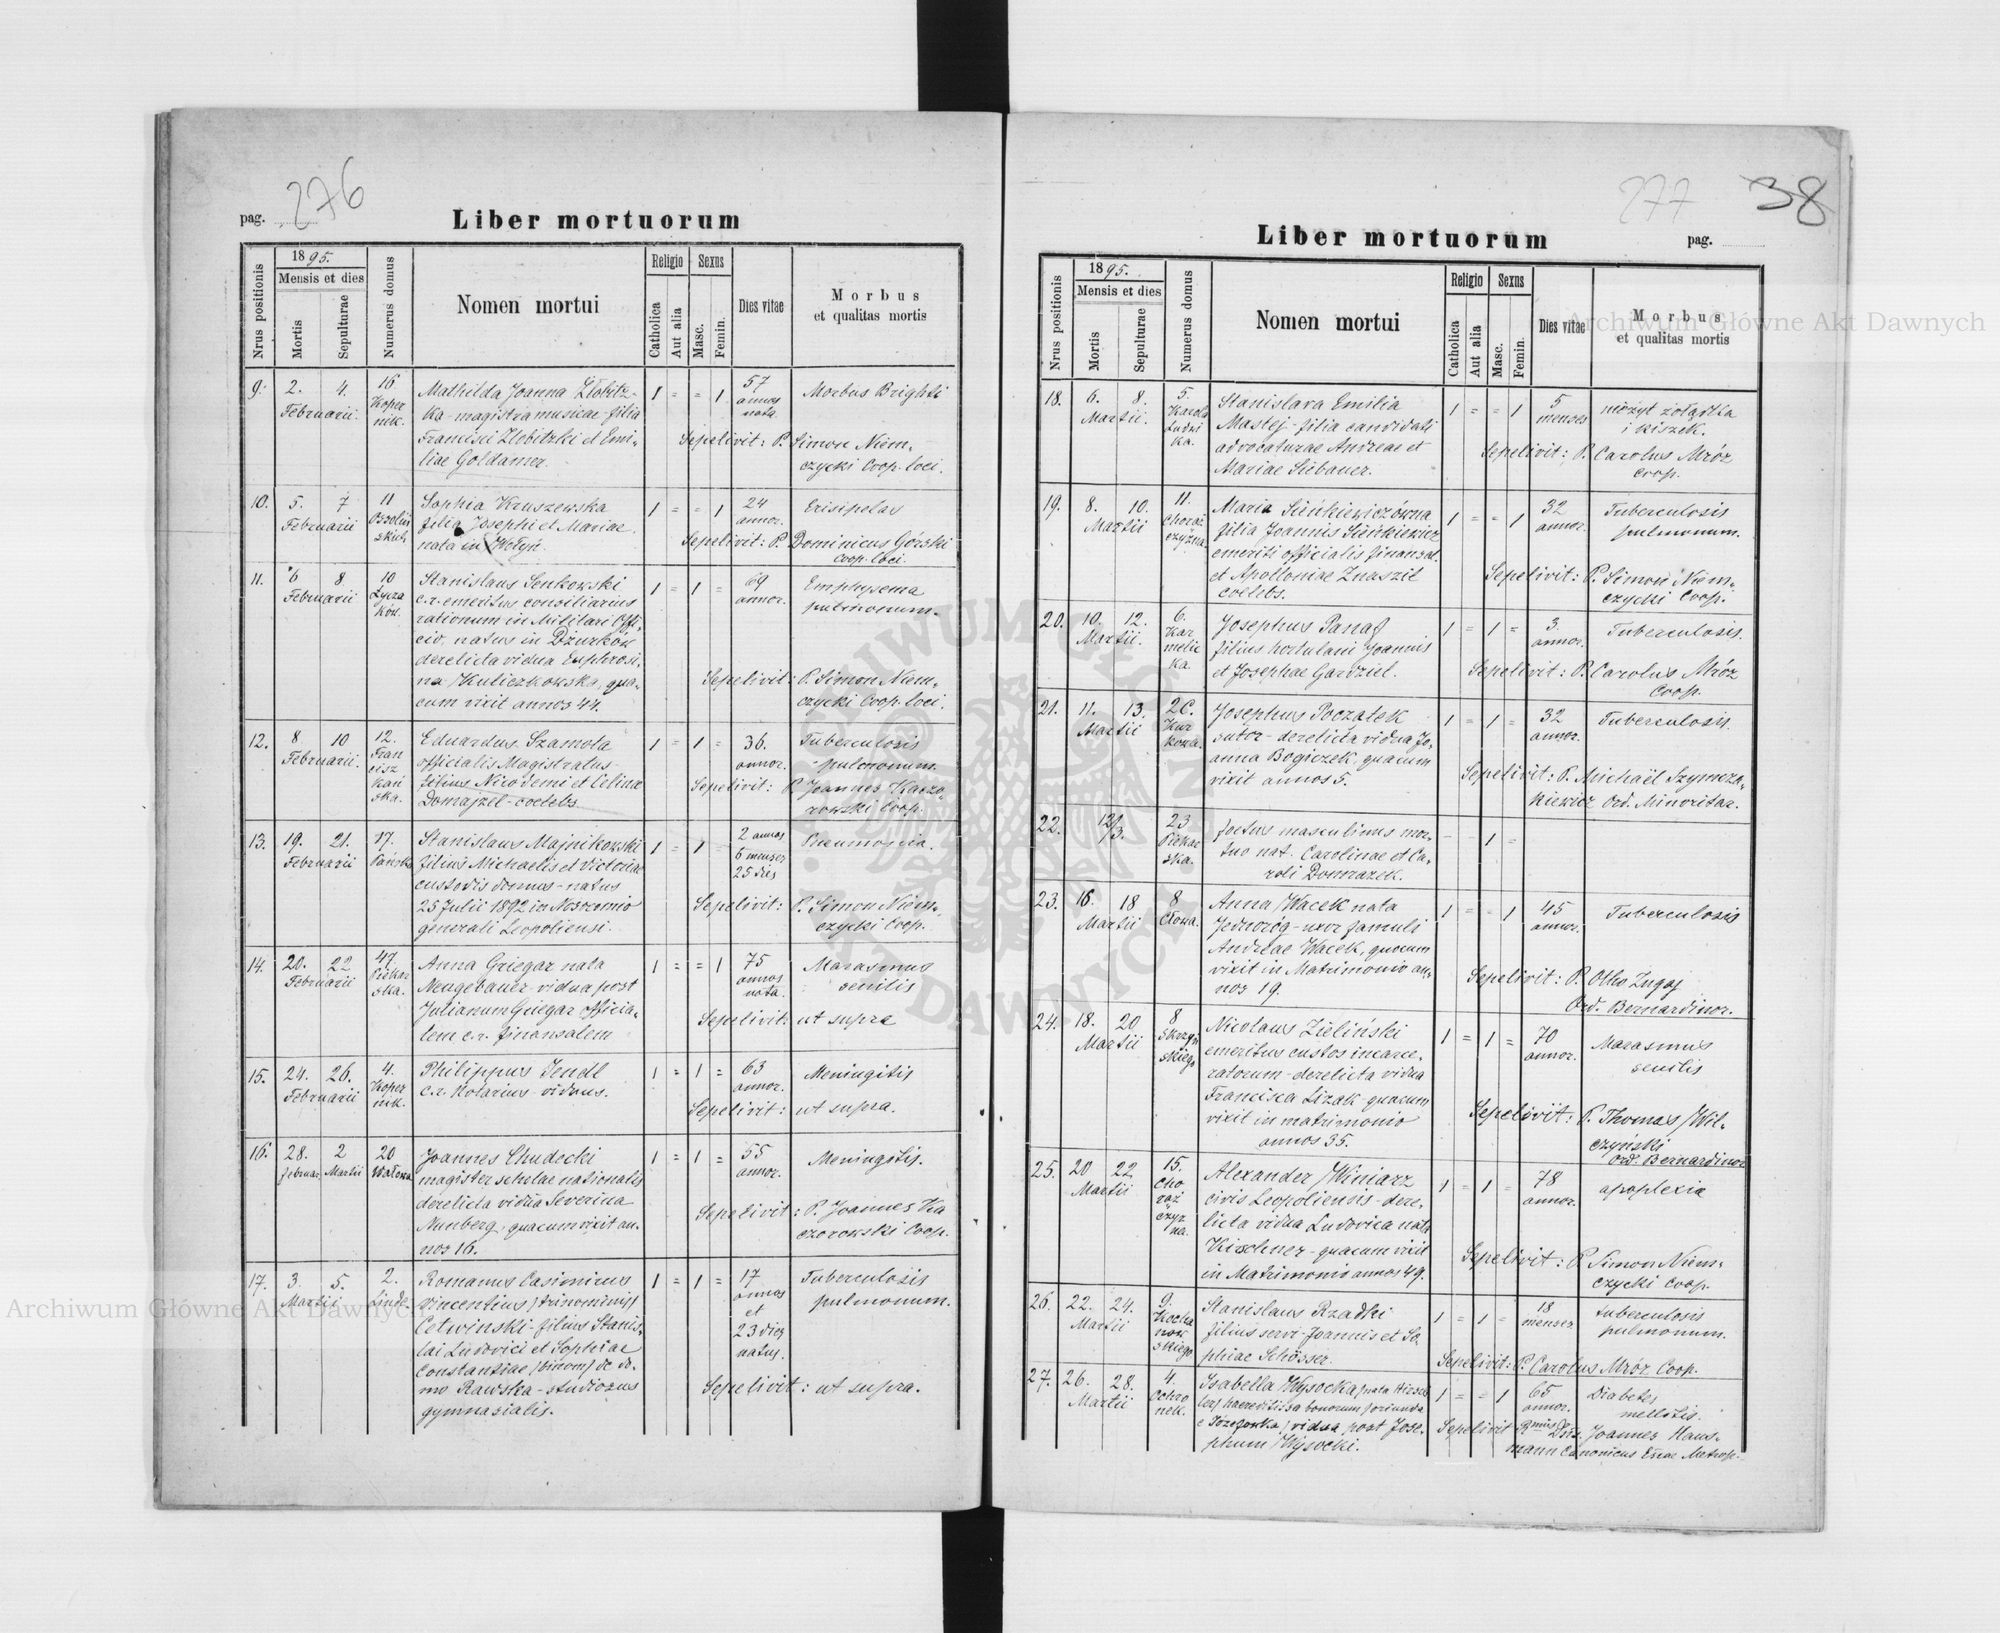 276
pag.
Liber mortuorum
Nrus positionis
1895.
Mensis et dies
Mortis
Sepulturae
Numerus domus
Nomen mortui
Religio
Catholica
Aut alia
Sexus
Masc.
Femin.
Dies vitae
Morbus
et qualitas mortis
9. 2. 4. 16 Mathilda Joanna Złobitz- 1 = = 1 57 Morbus Brighti
Februarii. Koper ka - magistra musicae - filia annos
nik. Francisci Zlobitzki et Emi- nata
liae Goldamer. Sepelivit: P. Simon Niem-
czycki Coop. loci.
10. 5. 7 11 Sophia Kruszewska 1 = = 1 24 Erisipelas
Februarii filia Josephi et Mariae annor.
nata in Wołyń. Sepelivit: P. Dominicus Górski
coop. loci.
11. 6 8. 10 Stanislaus Senkowski 1 = 1 = 69 Emphysema
Februarii Łycza c.r. emeritus consiliarius annor. pulmonum.
ków. rationum in Militari Offi-
cio, natus in Dżurków
derelicta vidua Euphrosi-
na Kuliczkowska, qua- Sepelivit: P. Simon Niem-
cum vixit annos 44. czycki Coop. loci.
12. 8 10 12. Eduardus Szamota 1 = 1 = 36. Tuberculosis
Februarii. Fran officialis Magistratus - annor. pulmonum.
cisz filius Nicodemi et Celinae Sepelivit: P. Joannes Kaczo-
kań Domajzel - coelebs. rowski Coop.
ska.
13. 19. 21. 17. Stanislaus Majnikowski 1 = 1 = 2 annos Pneumonia.
Februarii Pańska filius Michaelis et Victoriae 6 menses
custodis domus - natus 25 dies
25 Julii 1892 in Nosocomio Sepelivit: P. Simon Niem-
generali Leopoliensi. czycki Coop.
14. 20. 22 47. Anna Griegar nata 1 = = 1 75 Marasmus
Februarii Piekar Neugebauer - vidua post annos senilis
ska. Julianum Griegar officia- nata.
lem c.r. finansalem Sepelivit: ut supra
15. 24. 26. 4. Philippus Jendl 1 = 1 = 63 Meningitis
Februarii Koper c.r. Notarius - viduus. annor.
nik. Sepelivit: ut supra.
16. 28. 2 20 Joannes Chudecki 1 = 1 = 55 Meningitis.
Februar. Martii Wałowa magister scholae nationalis annor.
derelicta vidua Severina
Nunberg, quacum vixit an- Sepelivit: P. Joannes Ka
nos 16. czorowski Coop.
17. 3. 5. 2. Romanus Casimirus 1 = 1 = 17 Tuberculosis
Martii Linde. Vincentius (trinominis) annos pulmonum.
Cetwinski - filius Stanis- et
lai Ludovici et Sophiae 23 dies
Constantiae (binom) de do- natus.
mo Rawska - studiosus
gymnasialis. Sepelivit: ut supra.
277 38
Liber mortuorum
pag.
Nrus positionis
1895.
Mensis et dies
Mortis
Sepulturae
Numerus domus
Nomen mortui
Religio
Catholica
Aut alia
Sexus
Masc.
Femin.
Dies vitae
Morbus
et qualitas mortis
18. 6. 8. 5. Stanislava Emilia 1 = = 1 5 nieżyt żołądka
Martii. Karola Mastej - filia candidati menses i kiszek.
Ludwi advocaturae Andreae et Sepelivit: P. Carolus Mróz
ka. Mariae Siebauer. coop.
19. 8. 10. 11. Maria Sieńkiewiczówna 1 = = 1 32 Tuberculosis
Martii Chorąż filia Joannis Sieńkiewicz annor. pulmonum.
czyzna. emeriti officialis finansal.
et Apolloniae Znaszil Sepelivit: P. Simon Niem-
coelebs. czycki Coop.
20. 10. 12. 6. Josephus Panas 1 = 1 = 3. Tuberculosis.
Martii. Kar filius hortulani Joannis annor.
melic et Josephae Gardziel. Sepelivit: P. Carolus Mróz
ka. Coop.
21. 11. 13. 20. Josephus Początek 1 = 1 = 32 Tuberculosis.
Martii Kur sutor - derelicta vidua Jo- annor.
kowa. anna Bogiczek, quacum Sepelivit: P. Michaël Szymcza-
vixit annos 5. kiewicz Ord. Minoritar.
22. 12/3. 23 foetus masculinus mor- 1 =
Piekar tuo nat. Carolinae et Ca-
ska. roli Domrazek.
23. 16. 18 8 Anna Wacek nata 1 = = 1 45 Tuberculosis
Martii Cłowa. Jednoróg - uxor famuli annor.
Andreae Wacek, quacum
vixit in Matrimonio an- Sepelivit: P. Otho Zugaj
nos 19. Ord. Bernardinor.
24. 18. 20 8 Nicolaus Zieliński 1 = 1 = 70 Marasmus
Martii Skrzyń emeritus custos incarce- annor. senilis
skiego ratorum - derelicta vidua
Francisca Lizak - quacum Sepelivit: P. Thomas Wil-
vixit in matrimonio czyński
annos 35. Ord. Bernardinor
25. 20 22 15. Alexander Winiarz 1 = 1 = 78 apoplexia
Martii Cho civis Leopoliensis - dere- annor.
rąż licta vidua Ludovica nata
czyz Kirschner - quacum vixit Sepelivit: P. Simon Niem-
na. in Matrimonio annos 49. czycki Coop.
26. 22. 24. 9. Stanislaus Rządki 1 = 1 = 18 tuberculosis
Martii Kocha filius servi - Joannis et So- menses pulmonum.
now phiae Schösser. Sepelivit: P. Carolus Mróz Coop.
skiego
27. 26. 28. 4. Isabella Wysocka (nata Hirsch 1 = = 1 65 Diabetes
Martii Ochro ler) haereditissa bonorum (oriunda annor. mellitis.
nek. vidua post Jose- Sepelivit Rmus Dnus. Joannes Haus-
phum Wysocki. mann Canonicus Ecae Metrop.
Archiwum Główne Akt Dawnych
Archiwum Główne Akt Dawnych
ARCHIWUM GŁÓWNE AKT DAWNYCH